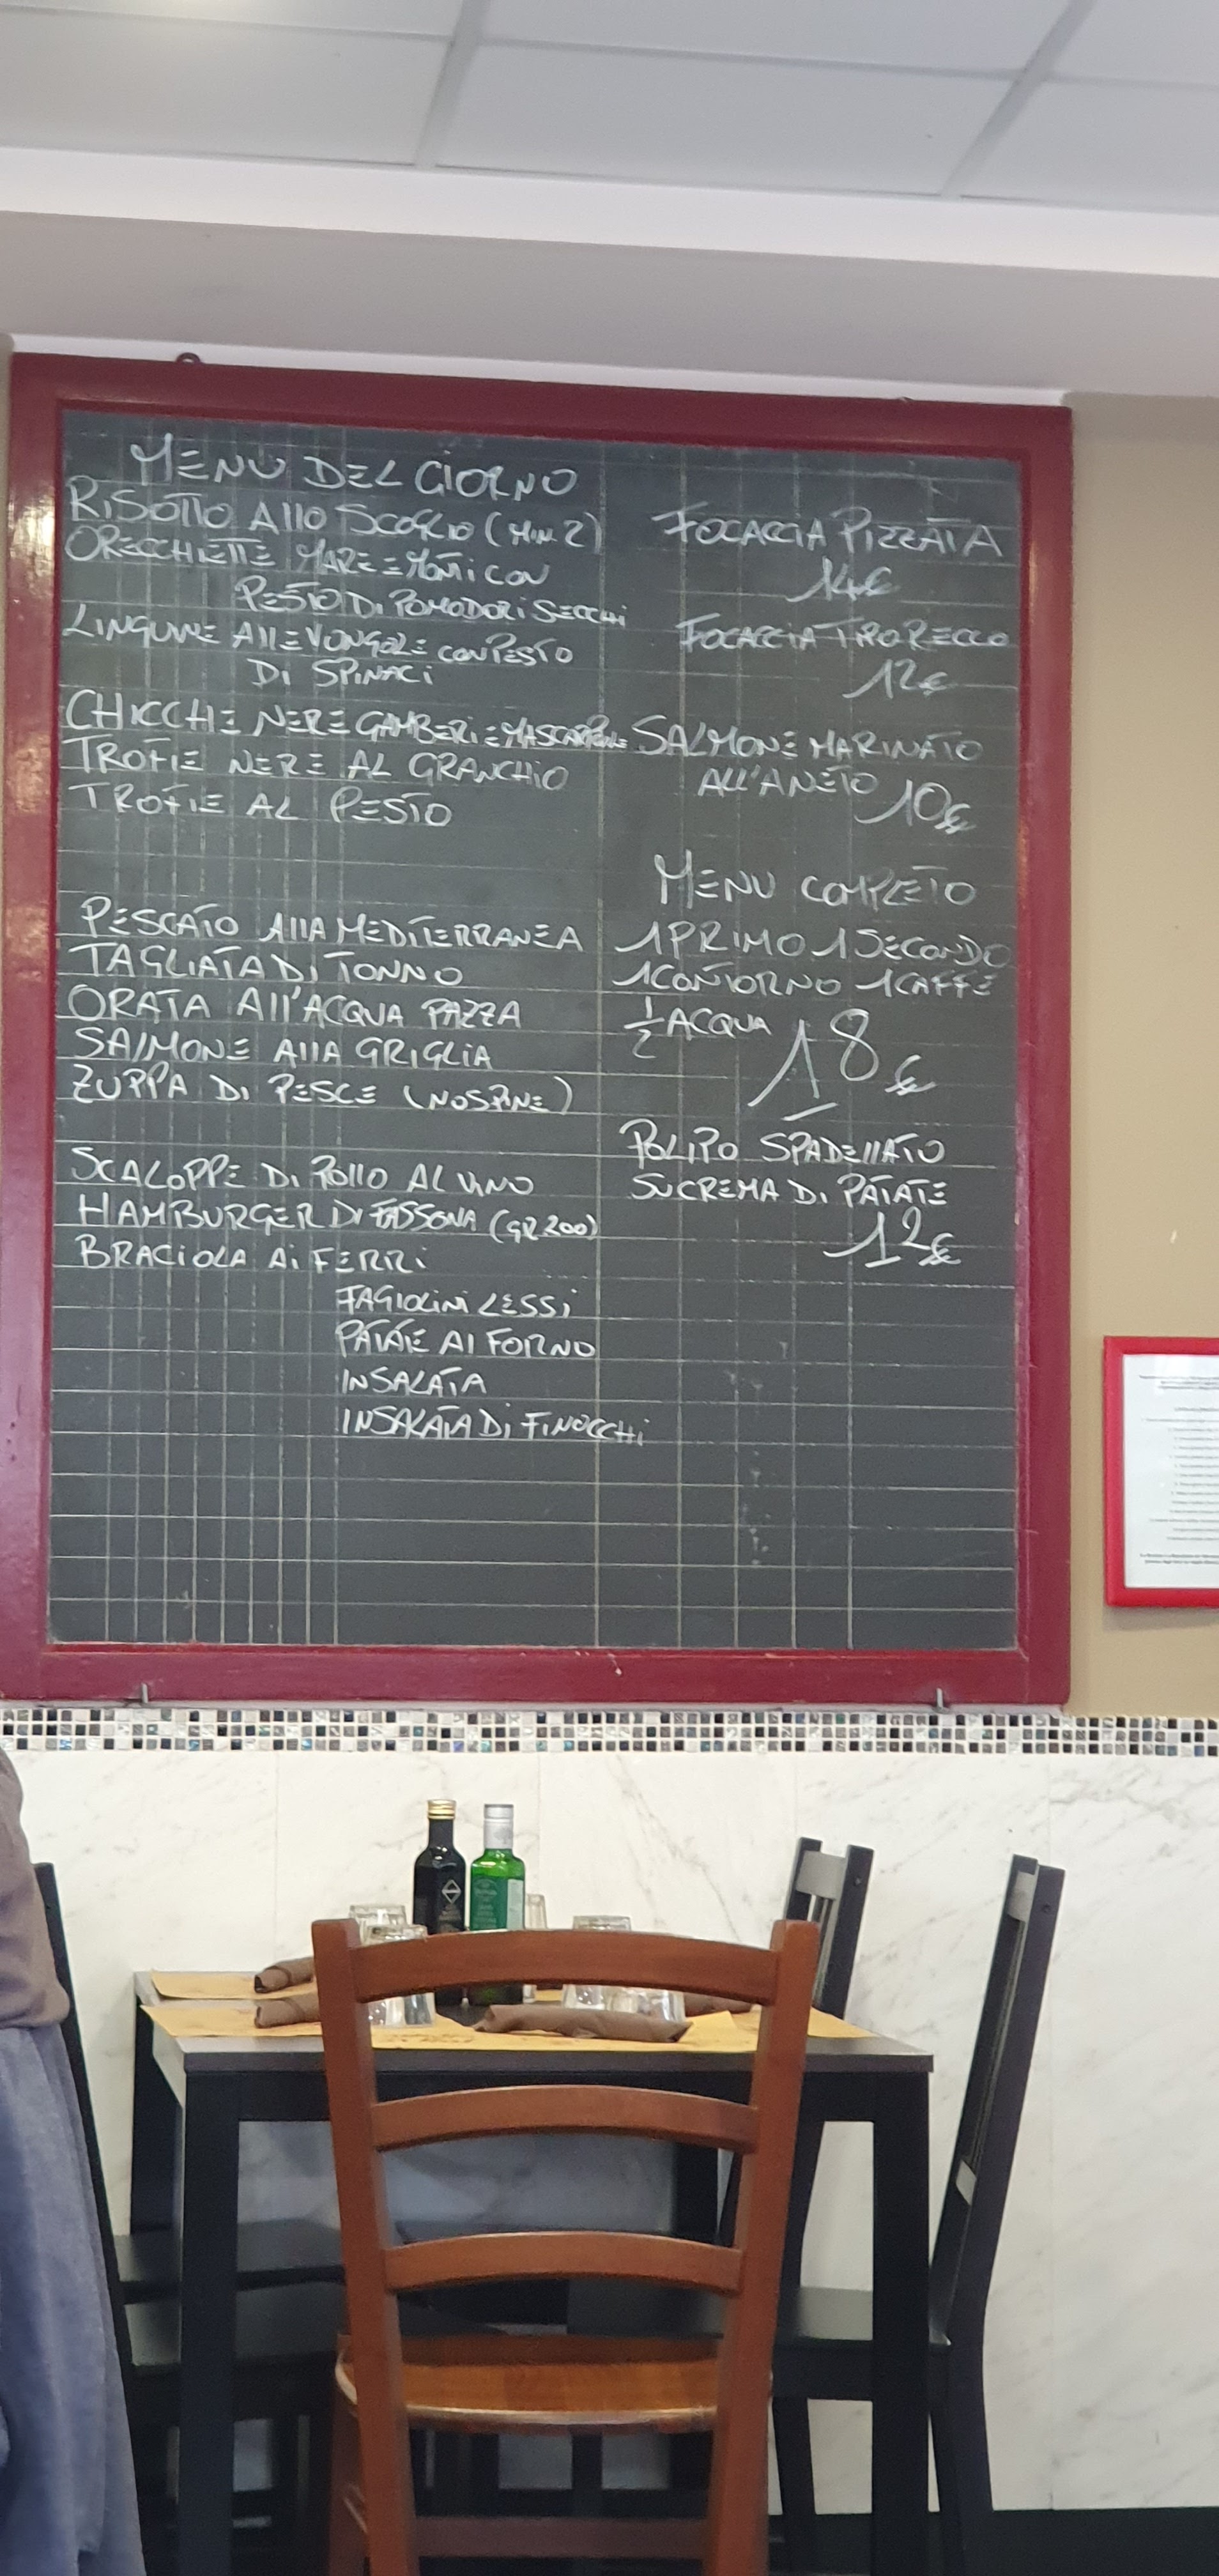 MENU DEL GIORNO
RISOTTO ALLO SCOGLIO (MIN 2)
ORECCHIETTE MARE E MONTI CON
PESTO DI POMODORI SECCHI
LINGUINE ALLE VONGOLE CON PESTO
DI SPINACI
CHICCHE NERE GAMBERI E MASCARPONE
TROFIE NERE AL GRANCHIO
TROFIE AL PESTO
PESCATO ALLA MEDITERRANEA
TAGLIATA DI TONNO
ORATA ALL'ACQUA PAZZA
SALMONE ALLA GRIGLIA
ZUPPA DI PESCE (NO SPINE)
SCALOPPE DI POLLO AL VINO
HAMBURGER DI FASSONA (GR 200)
BRACIOLA AI FERRI
FAGIOLINI LESSI
PATATE AL FORNO
INSALATA
INSALATA DI FINOCCHI
FOCACCIA PIZZATA
14€
FOCACCIA TIPO RECCO
12€
SALMONE MARINATO
ALL'ANETO 10€
MENU COMPLETO
1 PRIMO 1 SECONDO
1 CONTORNO 1 CAFFE
1/2 ACQUA 18€
POLIPO SPADELLATO
SU CREMA DI PATATE
12€